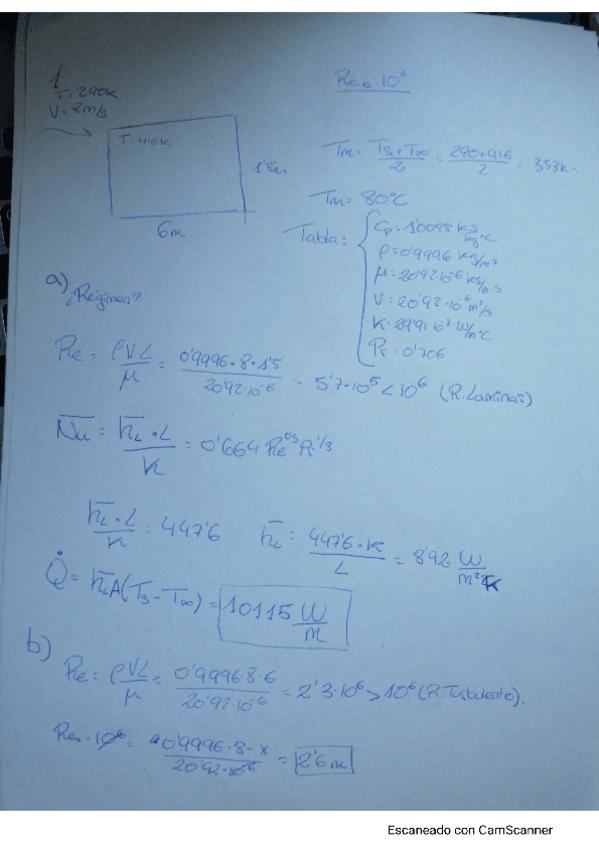 1
T=290K
V=2m/s
Rec=10⁶
T=416K
1'5m
6m
Tm = Ts+T∞/2 = 290+416/2 = 353K
Tm= 80ºC
Tabla:
Cp=1'0095 KJ/kgºC
ρ=0'9996 Kg/m³
μ=20'92·10⁻⁶ KG/m·s
V=20'92·10⁻⁶ m²/s
K=29'91·10³ W/mºC
Pr=0'706
a)
¿Régimen?
Re = ρVL/μ = 0'9996·8·1'5/20'92·10⁻⁶ = 5'7·10⁵<10⁶ (R.Laminar)
Nu = hL·L/K = 0'664 Re^0'5 Pr^1/3
hL·L/K = 447'6 hL = 447'6·K/L = 8'92 W/m²K
Q̇ = hLA(Ts-T∞) = 10115 W/m
b)
Re = ρVL/μ = 0'9996 8·6/20'92·10⁻⁶ = 2'3·10⁶>10⁶ (R.Turbulento).
10⁶ = 0'9996·8·x/20'92·10⁻⁶ = 2'6m
Escaneado con CamScanner